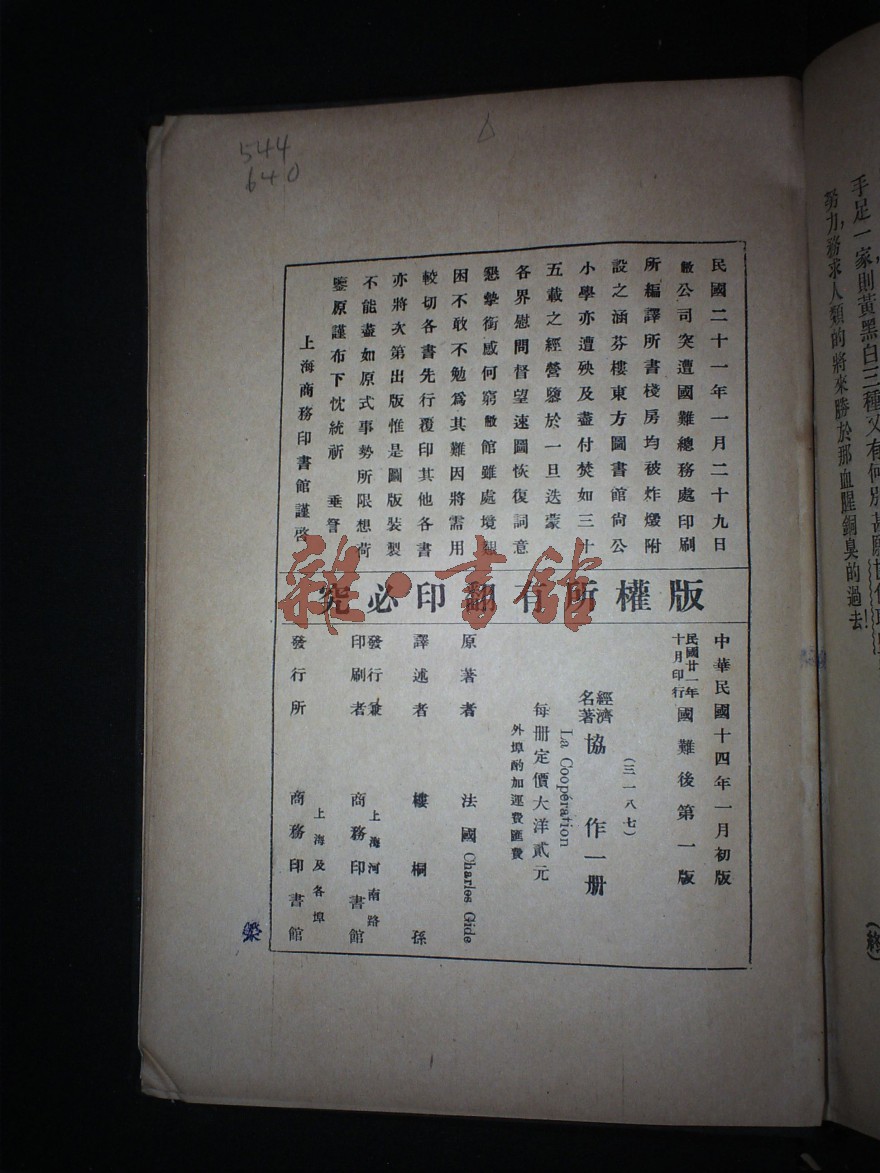 手足一家，則黃黑白三種又有何別
努力，務求人類的將來勝於那血腥銅臭的過去！
（終）
544
640
民國二十一年一月二十九日
敝公司突遭國難總務處印刷
所編譯所書棧房均被炸燬附
設之涵芬樓東方圖書館尙公
小學亦遭殃及盡付焚如三十
五載之經營隳於一旦迭蒙
各界慰問督望速圖恢復詞意
懇摯銜感何窮敝館雖處境艱
困不敢不勉爲其難因將需用
較切各書先行覆印其他各書
亦將次第出版惟是圖版裝製
不能盡如原式事勢所限想荷
鑒原謹布下忱統祈 垂詧
上海商務印書館謹啓
版權所有翻印必究
中華民國十四年一月初版
民國廿一年十月印行國難後第一版
（三一八七）
經濟名著協作一册
La Coopération
每册定價大洋貳元
外埠酌加運費匯費
原著者 法國 Charles Gide
譯述者 樓桐孫
發行兼印刷者 上海河南路 商務印書館
發行所 上海及各埠 商務印書館
雜·書館